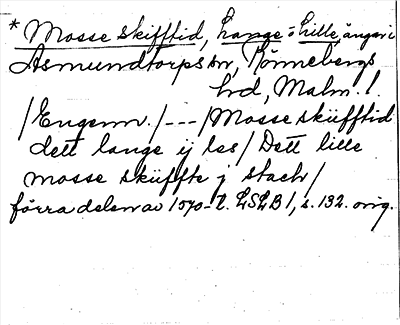 * Mosse skifftid, Lange = o Lille, ängar i
Asmundtorps sn, Rönnebergs
hrd, Malm. l.
/Engenn./---/Mosse sküfftid
dett lange ij les/ Dett lille
mosse sküffte j stach/
förra delen av 1570-t. LSLB 1, s. 132. orig.